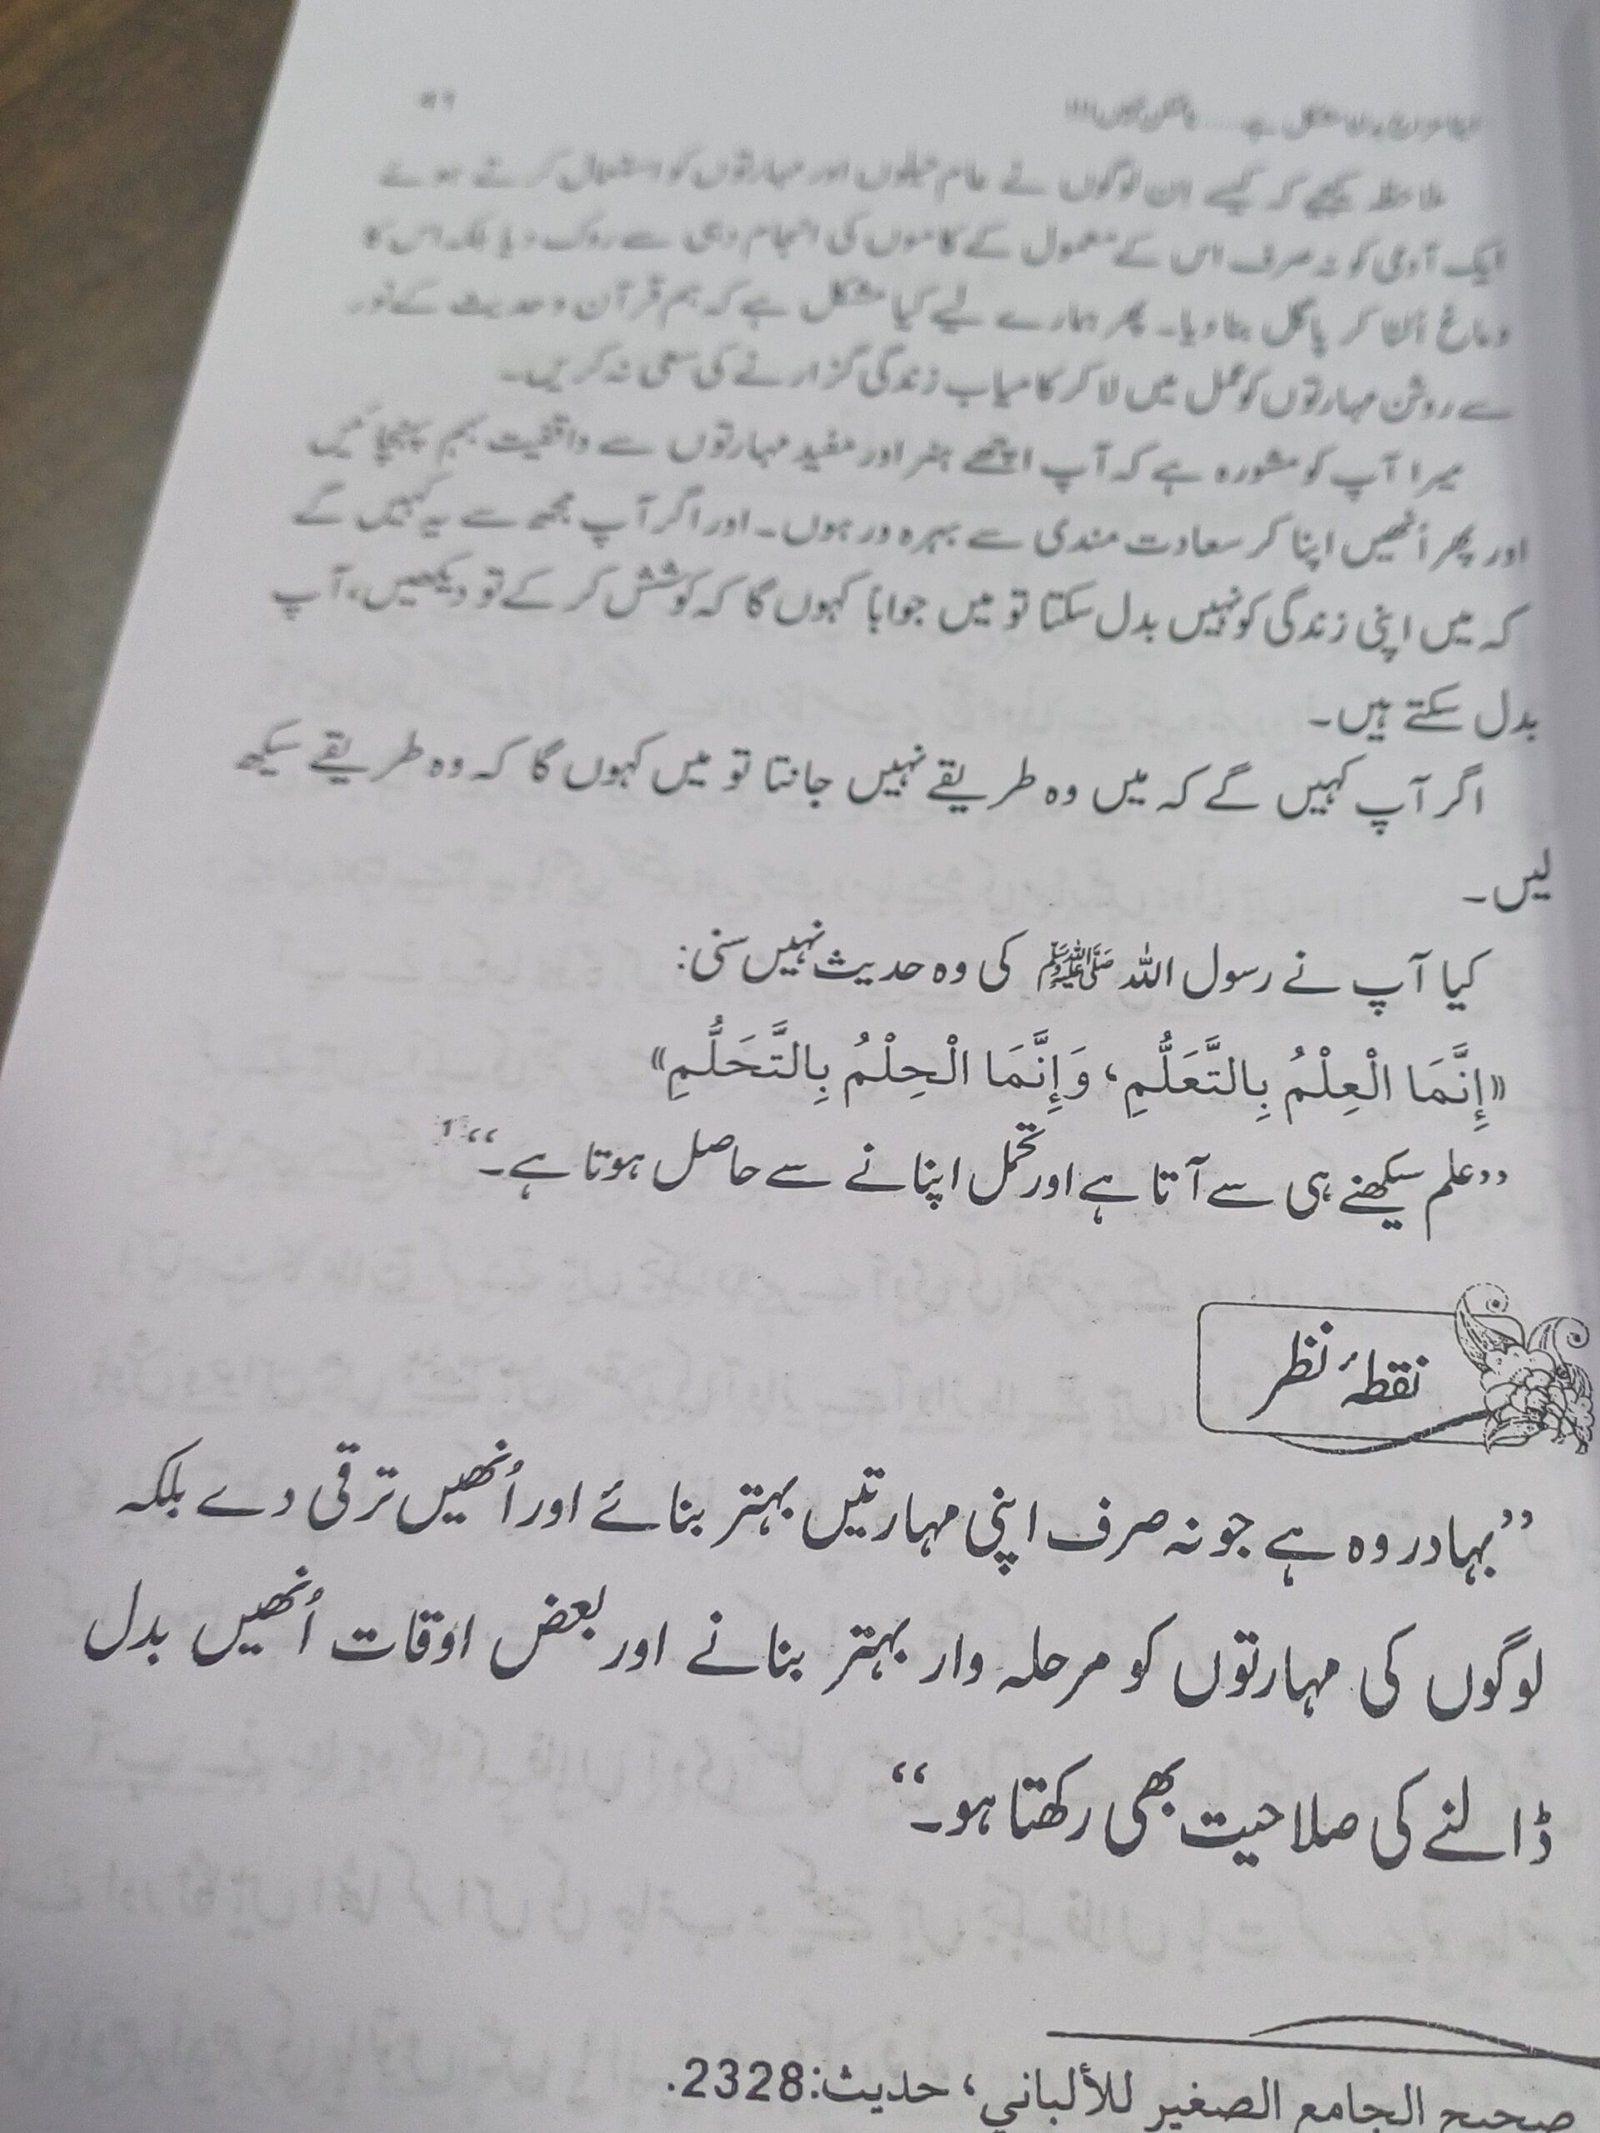 ملاحظہ کیجیے کہ کیسے ان لوگوں نے عام حیلوں اور مہارتوں کو استعمال کرتے ہوئے
ایک آدمی کو نہ صرف اس کے معمول کے کاموں کی انجام دہی سے روک دیا بلکہ اس کا
دماغ اُلٹا کر پاگل بنا دیا۔ پھر ہمارے لیے کیا مشکل ہے کہ ہم قرآن و حدیث کے نور
سے روشن مہارتوں کو عمل میں لا کر کامیاب زندگی گزارنے کی سعی نہ کریں۔
میرا آپ کو مشورہ ہے کہ آپ اچھے ہنر اور مفید مہارتوں سے واقفیت بہم پہنچائیں
اور پھر اُنھیں اپنا کر سعادت مندی سے بہرہ ور ہوں۔ اور اگر آپ مجھ سے یہ کہیں گے
کہ میں اپنی زندگی کو نہیں بدل سکتا تو میں جواباً کہوں گا کہ کوشش کر کے تو دیکھیں، آپ
بدل سکتے ہیں۔
اگر آپ کہیں گے کہ میں وہ طریقے نہیں جانتا تو میں کہوں گا کہ وہ طریقے سیکھ
لیں۔
کیا آپ نے رسول اللہ ﷺ کی وہ حدیث نہیں سنی:
«إِنَّمَا الْعِلْمُ بِالتَّعَلُّمِ، وَإِنَّمَا الْحِلْمُ بِالتَّحَلُّمِ»
’’علم سیکھنے ہی سے آتا ہے اور تحمل اپنانے سے حاصل ہوتا ہے۔‘‘
نقطۂ نظر
’’بہادر وہ ہے جو نہ صرف اپنی مہارتیں بہتر بنائے اور اُنھیں ترقی دے بلکہ
لوگوں کی مہارتوں کو مرحلہ وار بہتر بنانے اور بعض اوقات اُنھیں بدل
ڈالنے کی صلاحیت بھی رکھتا ہو۔‘‘
صحیح الجامع الصغیر للألباني، حدیث:2328.